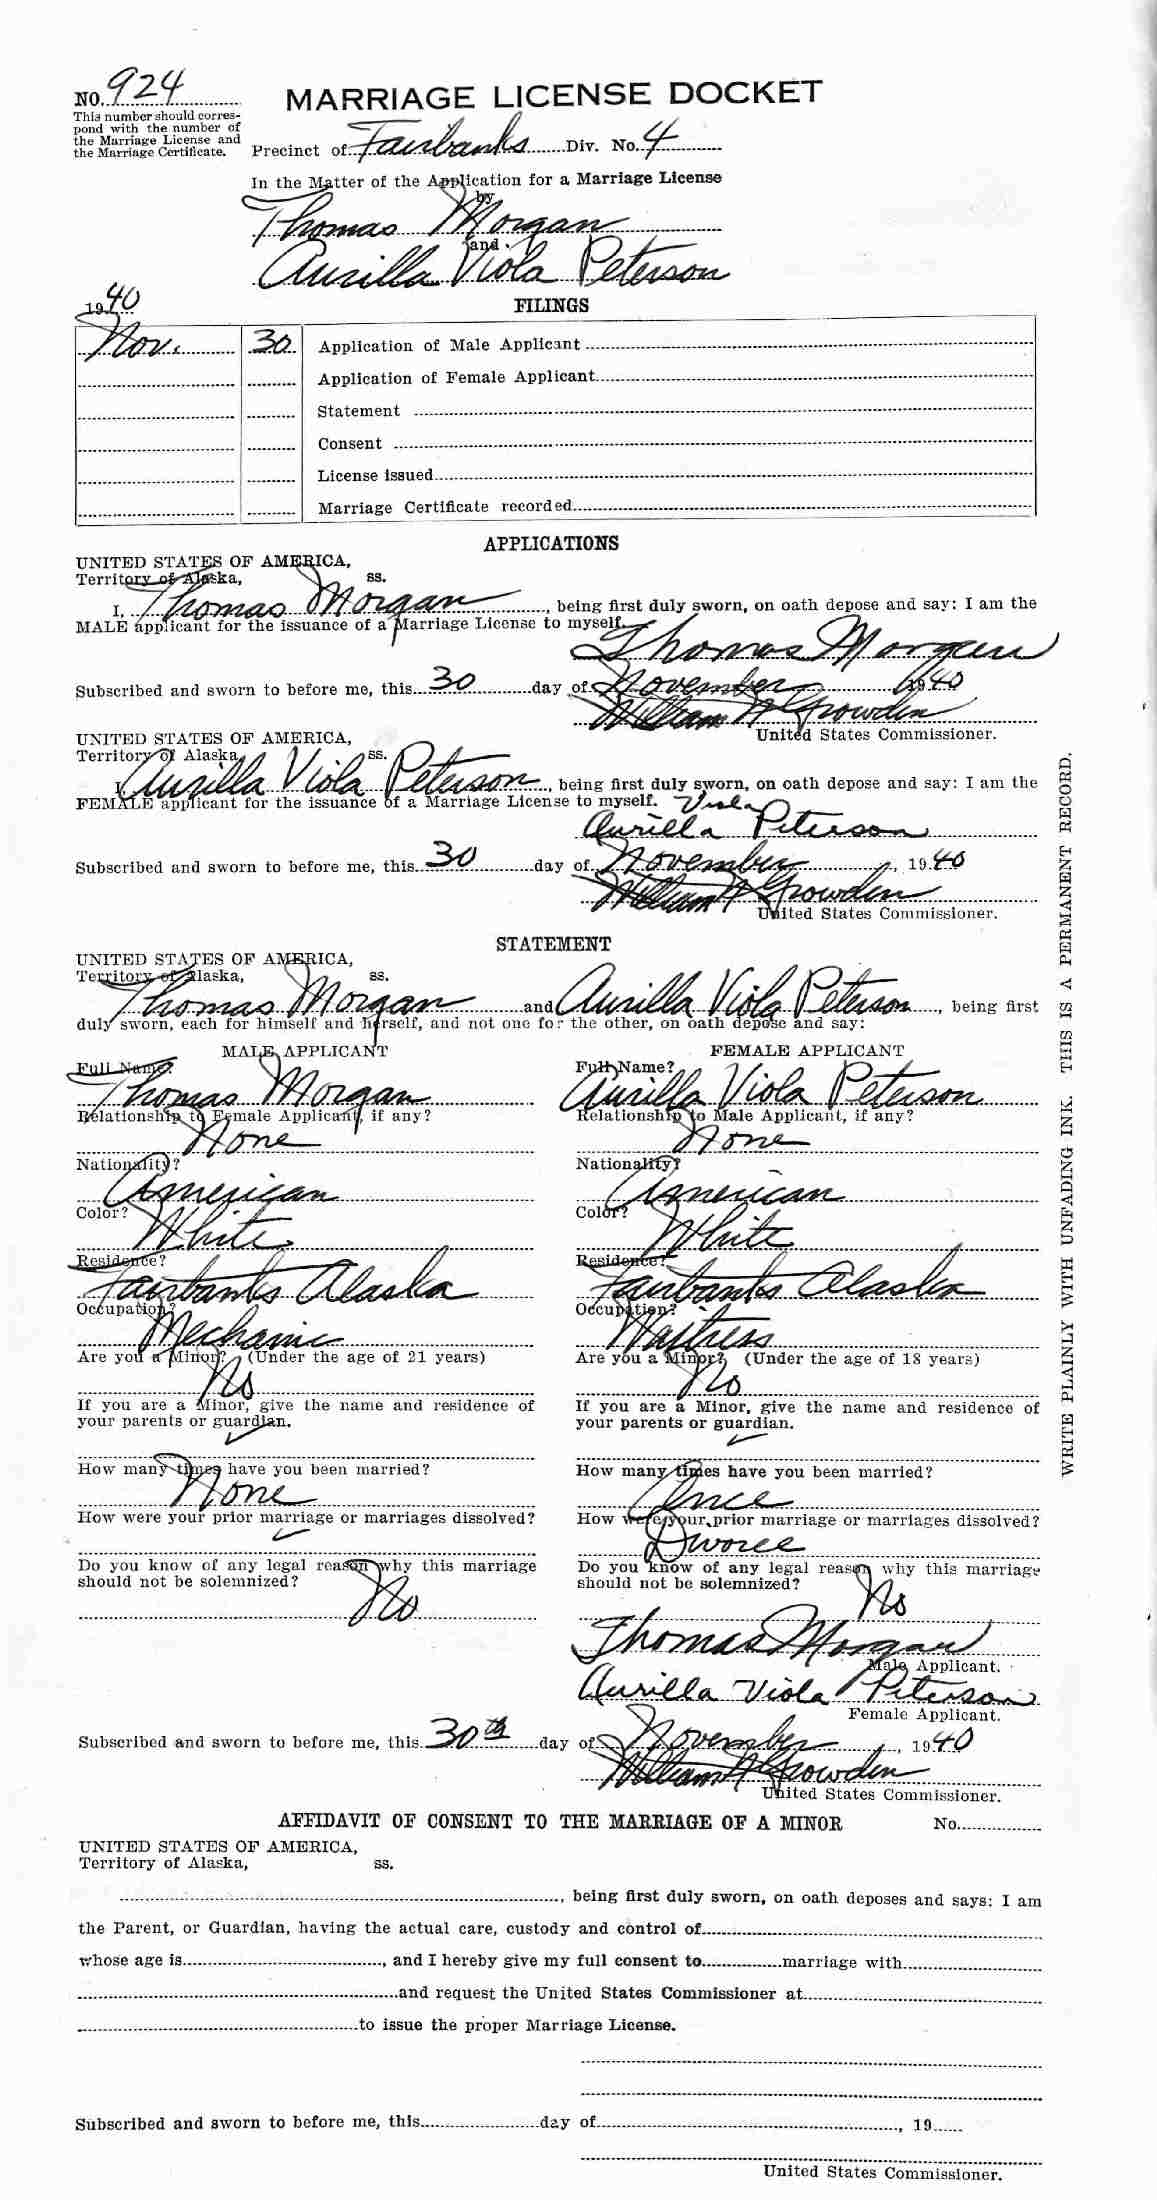 NO. 924
This number should corres-
pond with the number of
the Marriage License and
the Marriage Certificate.
MARRIAGE LICENSE DOCKET
Precinct of Fairbanks Div. No. 4
In the Matter of the Application for a Marriage License
by
Thomas Morgan
and
Aurilla Viola Peterson
1940
FILINGS
Nov. 30 Application of Male Applicant
Application of Female Applicant
Statement
Consent
License issued
Marriage Certificate recorded
APPLICATIONS
UNITED STATES OF AMERICA,
Territory of Alaska, ss.
I, Thomas Morgan, being first duly sworn, on oath depose and say: I am the
MALE applicant for the issuance of a Marriage License to myself.
Thomas Morgan
Subscribed and sworn to before me, this 30 day of November 1940
William N Growden
United States Commissioner.
UNITED STATES OF AMERICA,
Territory of Alaska ss.
I, Aurilla Viola Peterson, being first duly sworn, on oath depose and say: I am the
FEMALE applicant for the issuance of a Marriage License to myself.
Viola
Aurilla Peterson
Subscribed and sworn to before me, this 30 day of November, 1940
William N Growden
United States Commissioner.
STATEMENT
UNITED STATES OF AMERICA,
Territory of Alaska, ss.
Thomas Morgan and Aurilla Viola Peterson, being first
duly sworn, each for himself and herself, and not one for the other, on oath depose and say:
MALE APPLICANT
Full Name?
Thomas Morgan
Relationship to Female Applicant, if any?
None
Nationality?
American
Color?
White
Residence?
Fairbanks Alaska
Occupation?
Mechanic
Are you a Minor? (Under the age of 21 years)
No
If you are a Minor, give the name and residence of
your parents or guardian.
✓
How many times have you been married?
None
How were your prior marriage or marriages dissolved?
✓
Do you know of any legal reason why this marriage
should not be solemnized?
No
FEMALE APPLICANT
Full Name?
Aurilla Viola Peterson
Relationship to Male Applicant, if any?
None
Nationality?
American
Color?
White
Residence?
Fairbanks Alaska
Occupation?
Waitress
Are you a Minor? (Under the age of 18 years)
No
If you are a Minor, give the name and residence of
your parents or guardian.
✓
How many times have you been married?
Once
How were your prior marriage or marriages dissolved?
Divorce
Do you know of any legal reason why this marriage
should not be solemnized?
No
Thomas Morgan
Male Applicant.
Aurilla Viola Peterson
Female Applicant.
Subscribed and sworn to before me, this 30th day of November, 1940
William N Growden
United States Commissioner.
AFFIDAVIT OF CONSENT TO THE MARRIAGE OF A MINOR No.
UNITED STATES OF AMERICA,
Territory of Alaska, ss.
, being first duly sworn, on oath deposes and says: I am
the Parent, or Guardian, having the actual care, custody and control of
whose age is, and I hereby give my full consent to marriage with
and request the United States Commissioner at
to issue the proper Marriage License.
Subscribed and sworn to before me, this day of, 19
United States Commissioner.
WRITE PLAINLY WITH UNFADING INK. THIS IS A PERMANENT RECORD.